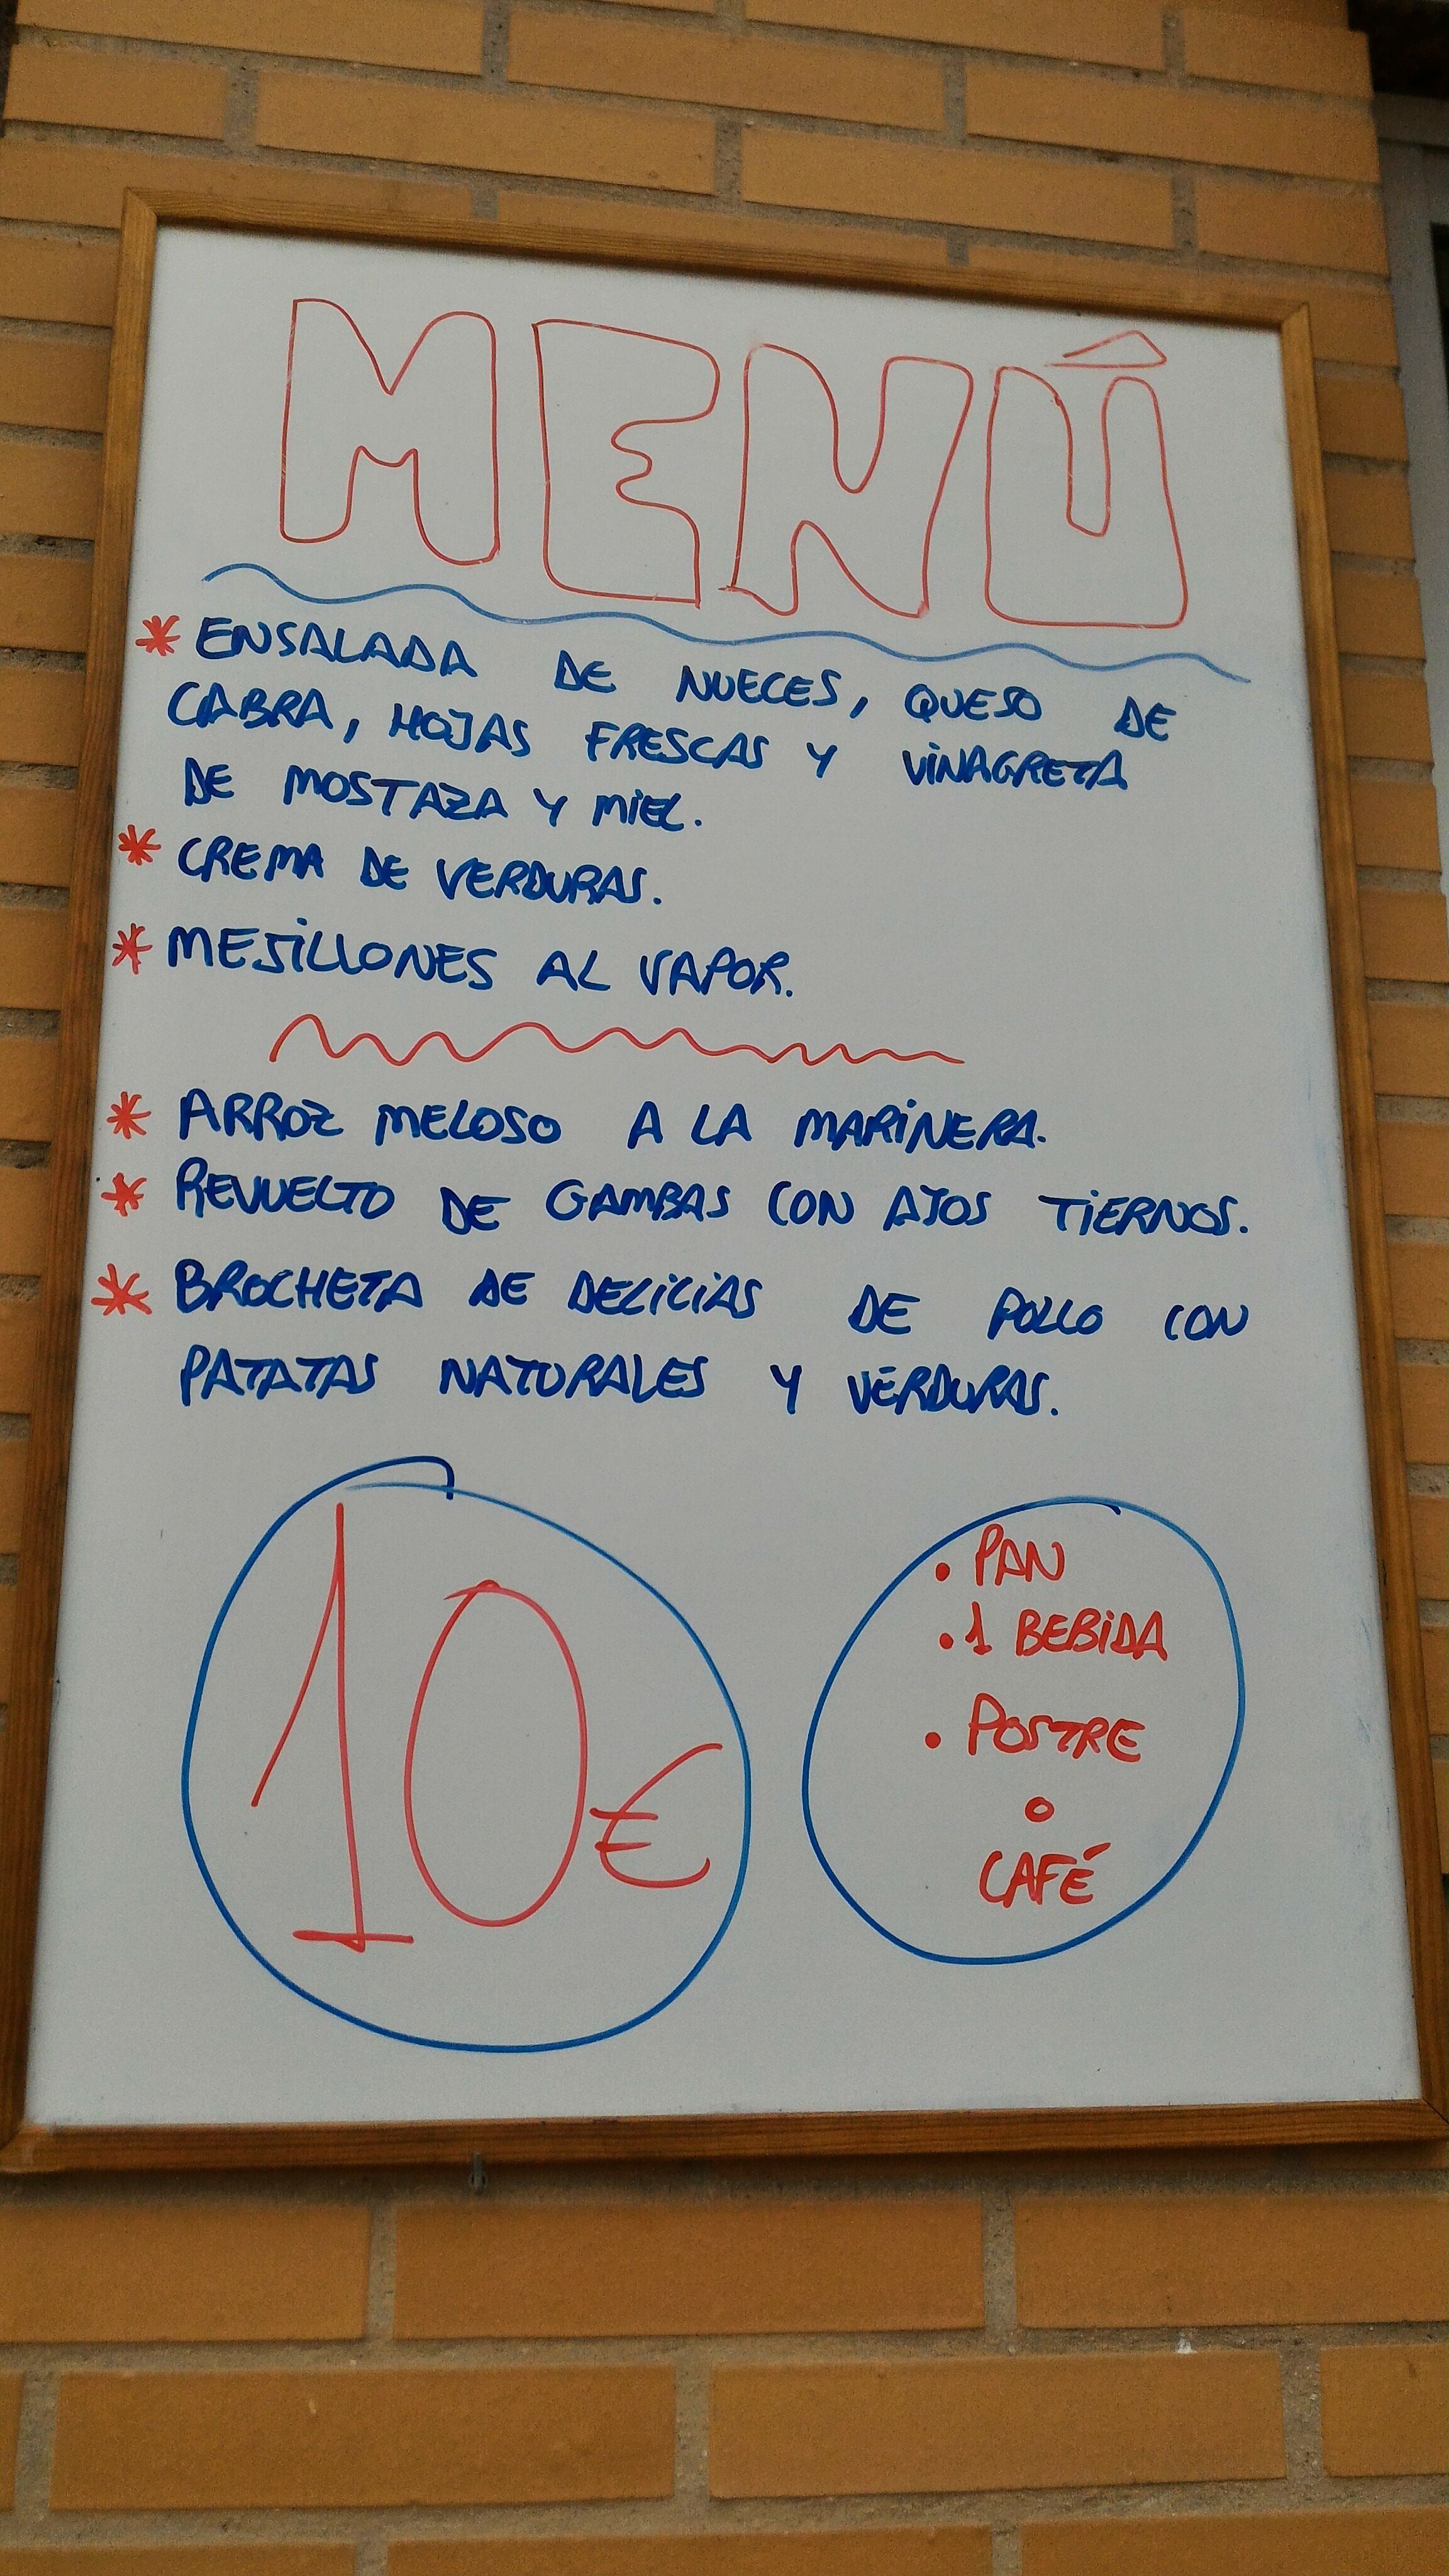 MENÚ
* ENSALADA DE NUECES, QUESO DE
CABRA, HOJAS FRESCAS Y VINAGRETA
DE MOSTAZA Y MIEL.
* CREMA DE VERDURAS.
* MEJILLONES AL VAPOR.
* ARROZ MELOSO A LA MARINERA.
* REVUELTO DE GAMBAS CON AJOS TIERNOS.
* BROCHETA DE DELICIAS DE POLLO CON
PATATAS NATURALES Y VERDURAS.
10€
• PAN
• 1 BEBIDA
• POSTRE
o
CAFÉ